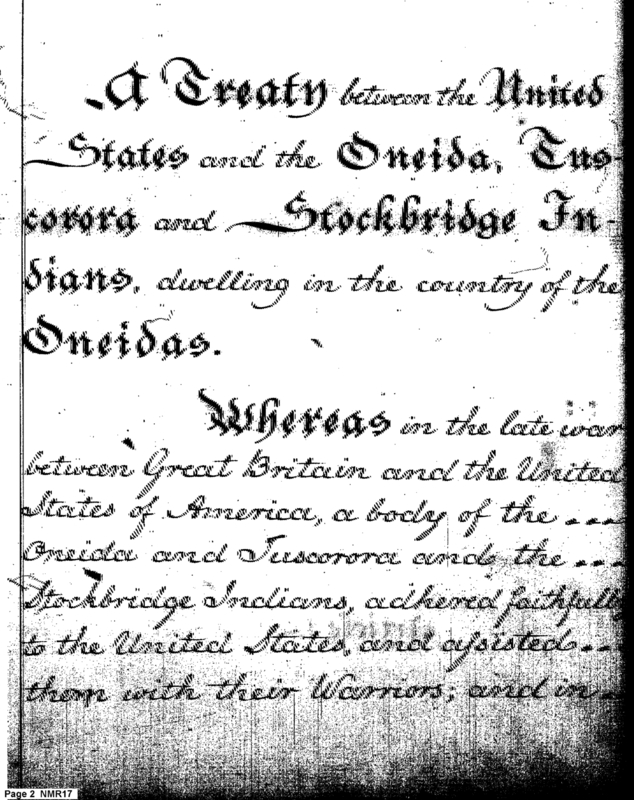 A Treaty between the United
States and the Oneida, Tus-
corora and Stockbridge In-
dians, dwelling in the country of the
Oneidas.
Whereas in the late war
between Great Britain and the United
States of America, a body of the ...
Oneida and Tuscorora and the ...
Stockbridge Indians, adhered faithfully
to the United States, and assisted ...
them with their Warriors; and in ..
Page 2 NMR17